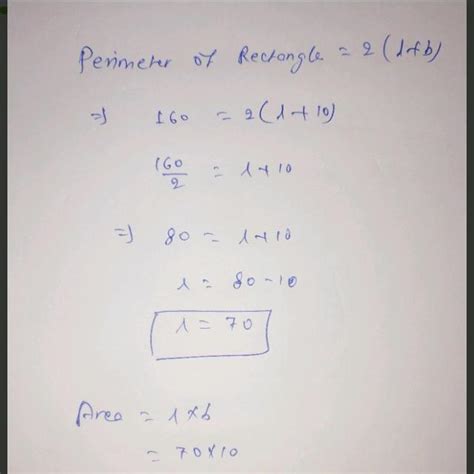 Perimeter of Rectangle = 2(l+b)
⇒ 160 = 2(l+10)
160/2 = l+10
⇒ 80 = l+10
l = 80-10
l = 70
Area = l×b
= 70×10